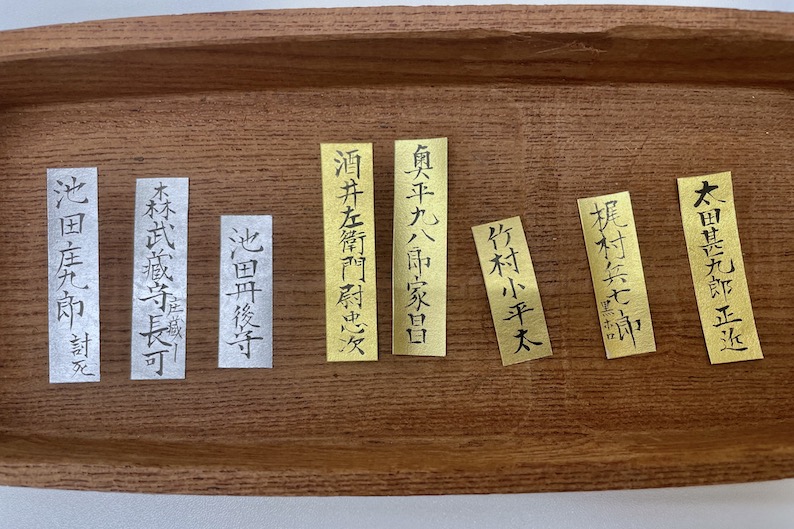 池田庄九郎 討死
森武蔵守長可
池田丹後守
酒井左衛門尉忠次
奥平九八郎家昌
竹村小平太
梶村兵七郎
黒ホロ
太田甚九郎正近